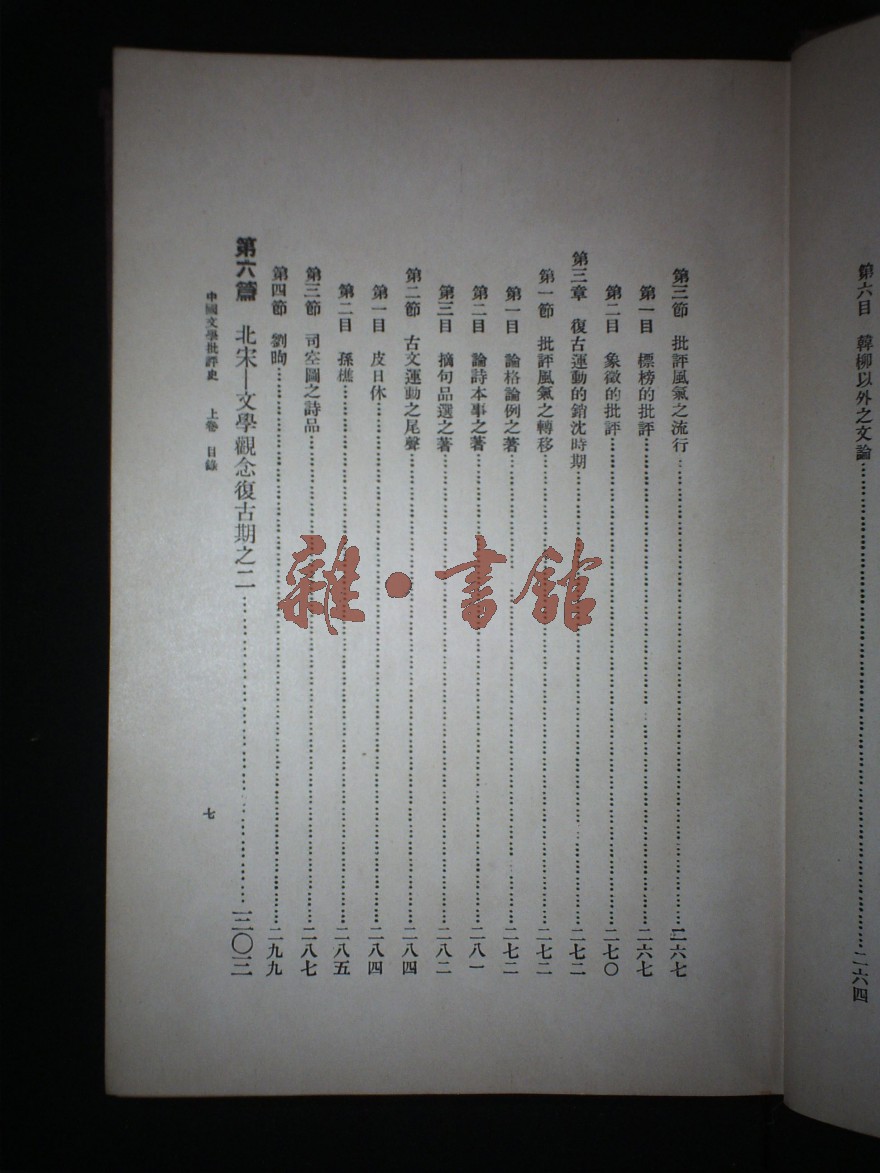 第六目 韓柳以外之文論……二六四
第三節 批評風氣之流行……二六七
第一目 標榜的批評……二六七
第二目 象徵的批評……二七〇
第三章 復古運動的銷沈時期……二七二
第一節 批評風氣之轉移……二七二
第一目 論格論例之著……二七二
第二目 論詩本事之著……二八一
第三目 摘句品選之著……二八二
第二節 古文運動之尾聲……二八四
第一目 皮日休……二八四
第二目 孫樵……二八五
第三節 司空圖之詩品……二八七
第四節 劉昫……二九九
第六篇 北宋—文學觀念復古期之二……三〇三
中國文學批評史 上卷 目錄 七
雜·書館